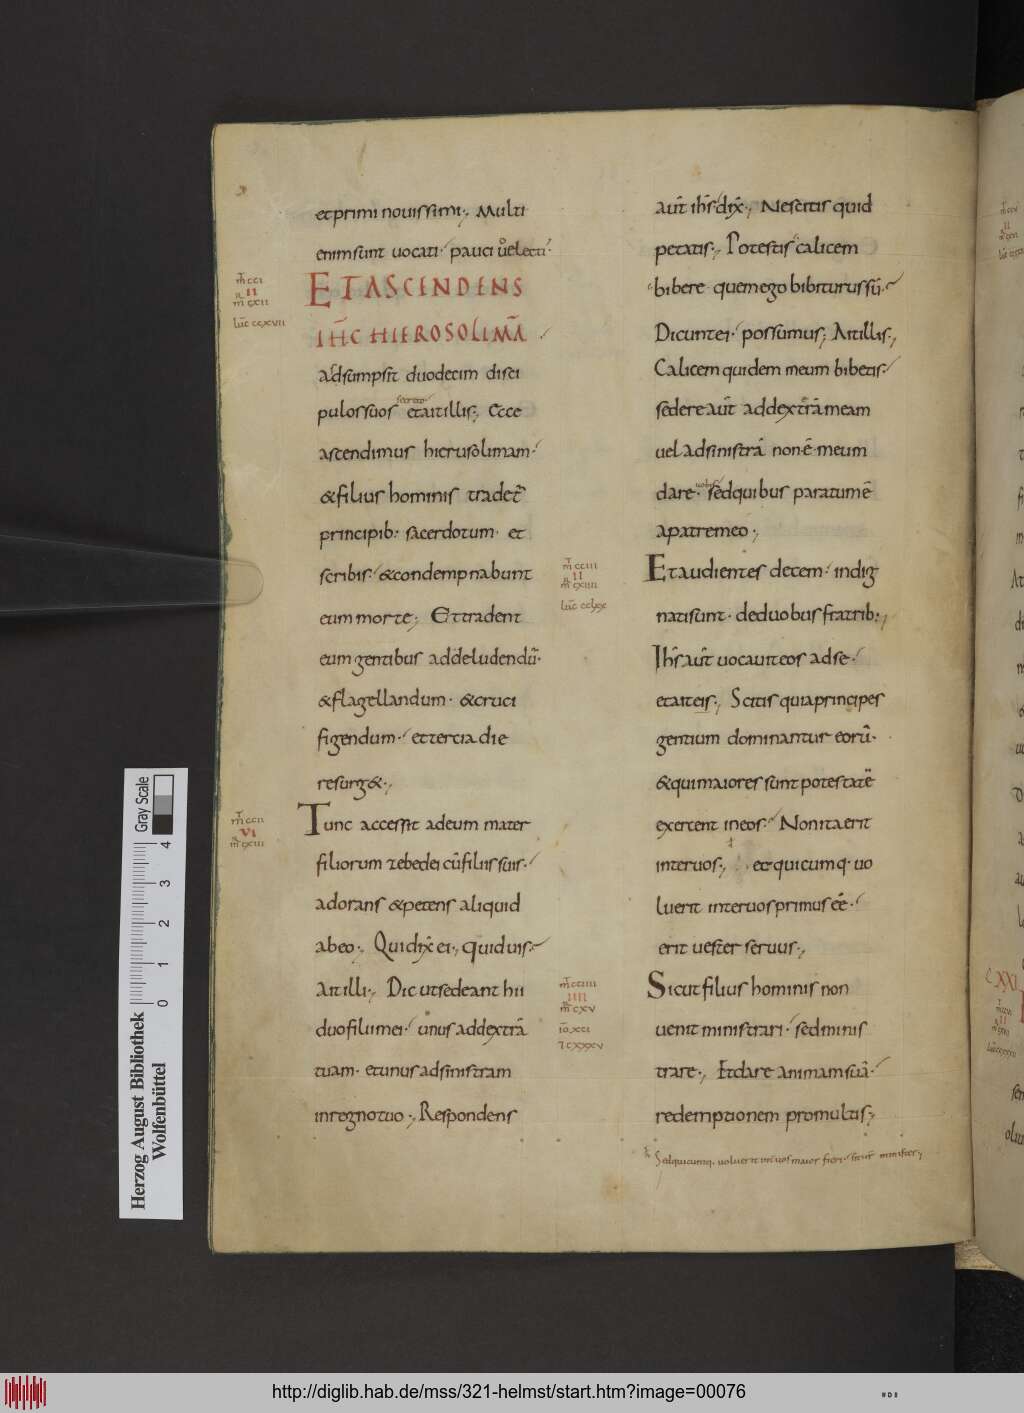 et primi nouissimi·, Multi
enim sunt uocati· pauci ũ electi·
m̅ CCI
II
m̅ CXII
luc̅ CCXVII
ET ASCENDENS
IH̅C HIEROSOLIMA̅
adsumpsit duodecim disci
secreto
pulos suos et ait illis·, Ecce
ascendimus hierusolimam·
& filius hominis tradet̅
principib: sacerdotum· et
scribis· & condempnabunt
eum morte·, Et tradent
eum gentibus ad deludendu̅·
& flagellandum· & cruci
figendum· et tercia die
resurg&·,
m̅ CCII
VI
m̅ CXIII
Tunc accessit ad eum mater
filiorum zebedei cu̅ filiis suis·
adorans & petens aliquid
ab eo·, Qui dix̅ ei·, quid uis·
Ait illi·, Dic ut sedeant hii
duo filii mei· unus ad dextra̅
tuam· et unus ad sinistram
in regno tuo·, Respondens
aut̅ ih̅s dix̅·, Nescitis quid
petatis·, Potestis calicem
bibere quem ego bibiturus su̅·
Dicunt ei· possumus·, Ait illis·,
Calicem quidem meum bibetis·
sedere aut̅ ad dextra̅ meam
uel ad sinistra̅ non· e̅· meum
uobis
dare· sed quibus paratum e̅
a patre meo·,
m̅ CCIII
II
m̅ CXIIII
luc̅ CCLXX
Et audientes decem· indig
nati sunt· de duobus fratrib:,
Ih̅s aut̅ uocauit eos ad se·
et ait eis·, Scitis quia principes
gentium dominantur eoru̅·
& qui maiores sunt potestate̅
exercent in eos· Non ita erit
inter uos·, et quicumq· uo
luerit inter uos primus ee̅·
erit uester seruus·,
m̅ CCIIII
IIII
m̅ CXV
io̅ XCI
Sicut filius hominis non
uenit ministrari· sed minis
trare·, Et dare animam sua̅·
redemptionem pro multis·,
Sed quicumq· uoluerit inter uos maior fieri· sit ur̅ minister·,
Herzog August Bibliothek
Wolfenbüttel
0 1 2 3 4
Gray Scale
http://diglib.hab.de/mss/321-helmst/start.htm?image=00076